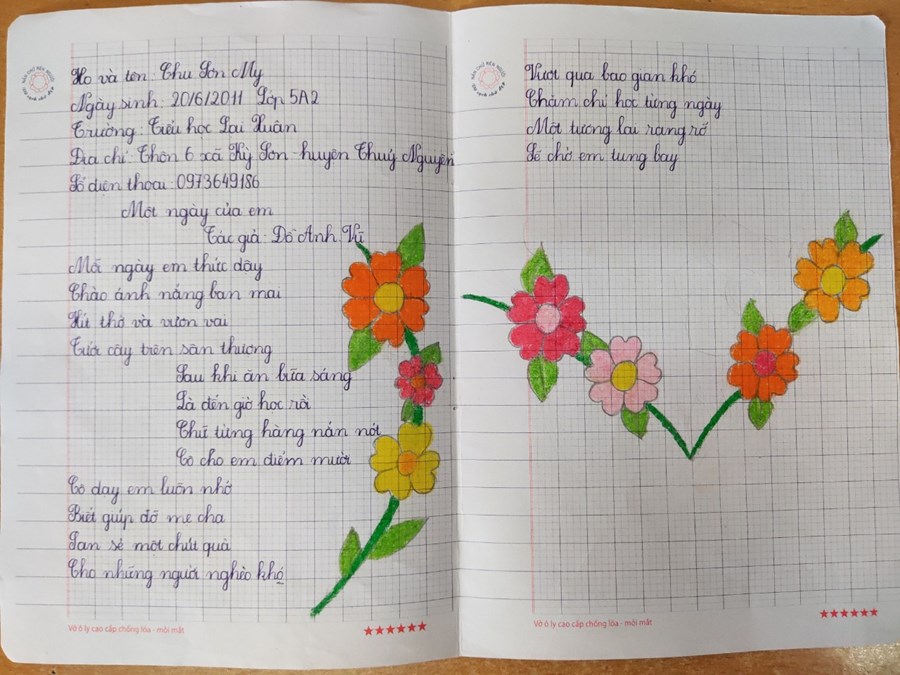 Họ và tên: Chu Sơn My
Ngày sinh: 20/6/2011 Lớp 5A2
Trường: Tiểu học Lai Xuân
Địa chỉ: Thôn 6 xã Kỳ Sơn - huyện Thuỷ Nguyên
Số điện thoại: 0973649186
Một ngày của em
Tác giả: Đỗ Anh Vũ
Mỗi ngày em thức dậy
Chào ánh nắng ban mai
Hít thở và vươn vai
Tưới cây trên sân thượng
Sau khi ăn bữa sáng
Là đến giờ học rồi
Chữ từng hàng nắn nót
Cô cho em điểm mười
Cô dạy em luôn nhớ
Biết giúp đỡ mẹ cha
San sẻ một chút quà
Cho những người nghèo khó
Vở ô ly cao cấp chống lóa - mỏi mắt
Vượt qua bao gian khó
Chăm chỉ học từng ngày
Một tương lai rạng rỡ
Sẽ chờ em tung bay
Vở ô ly cao cấp chống lóa - mỏi mắt